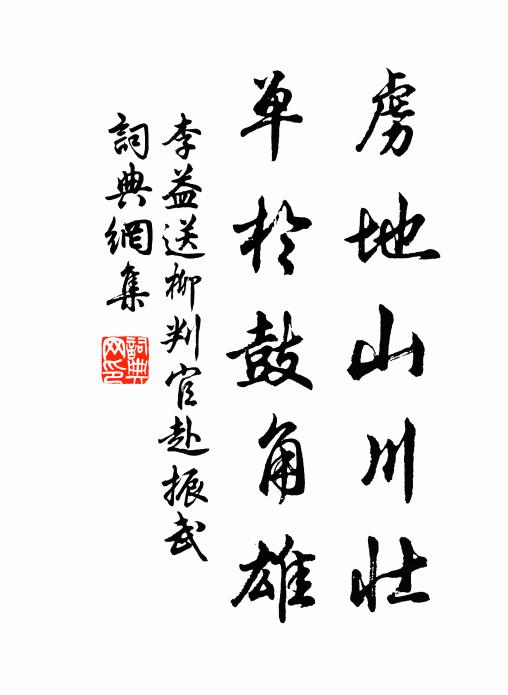 虜地山川壮
单於鼓角雄
李益送柳判官赴振武
詞典網集
詞典
网印